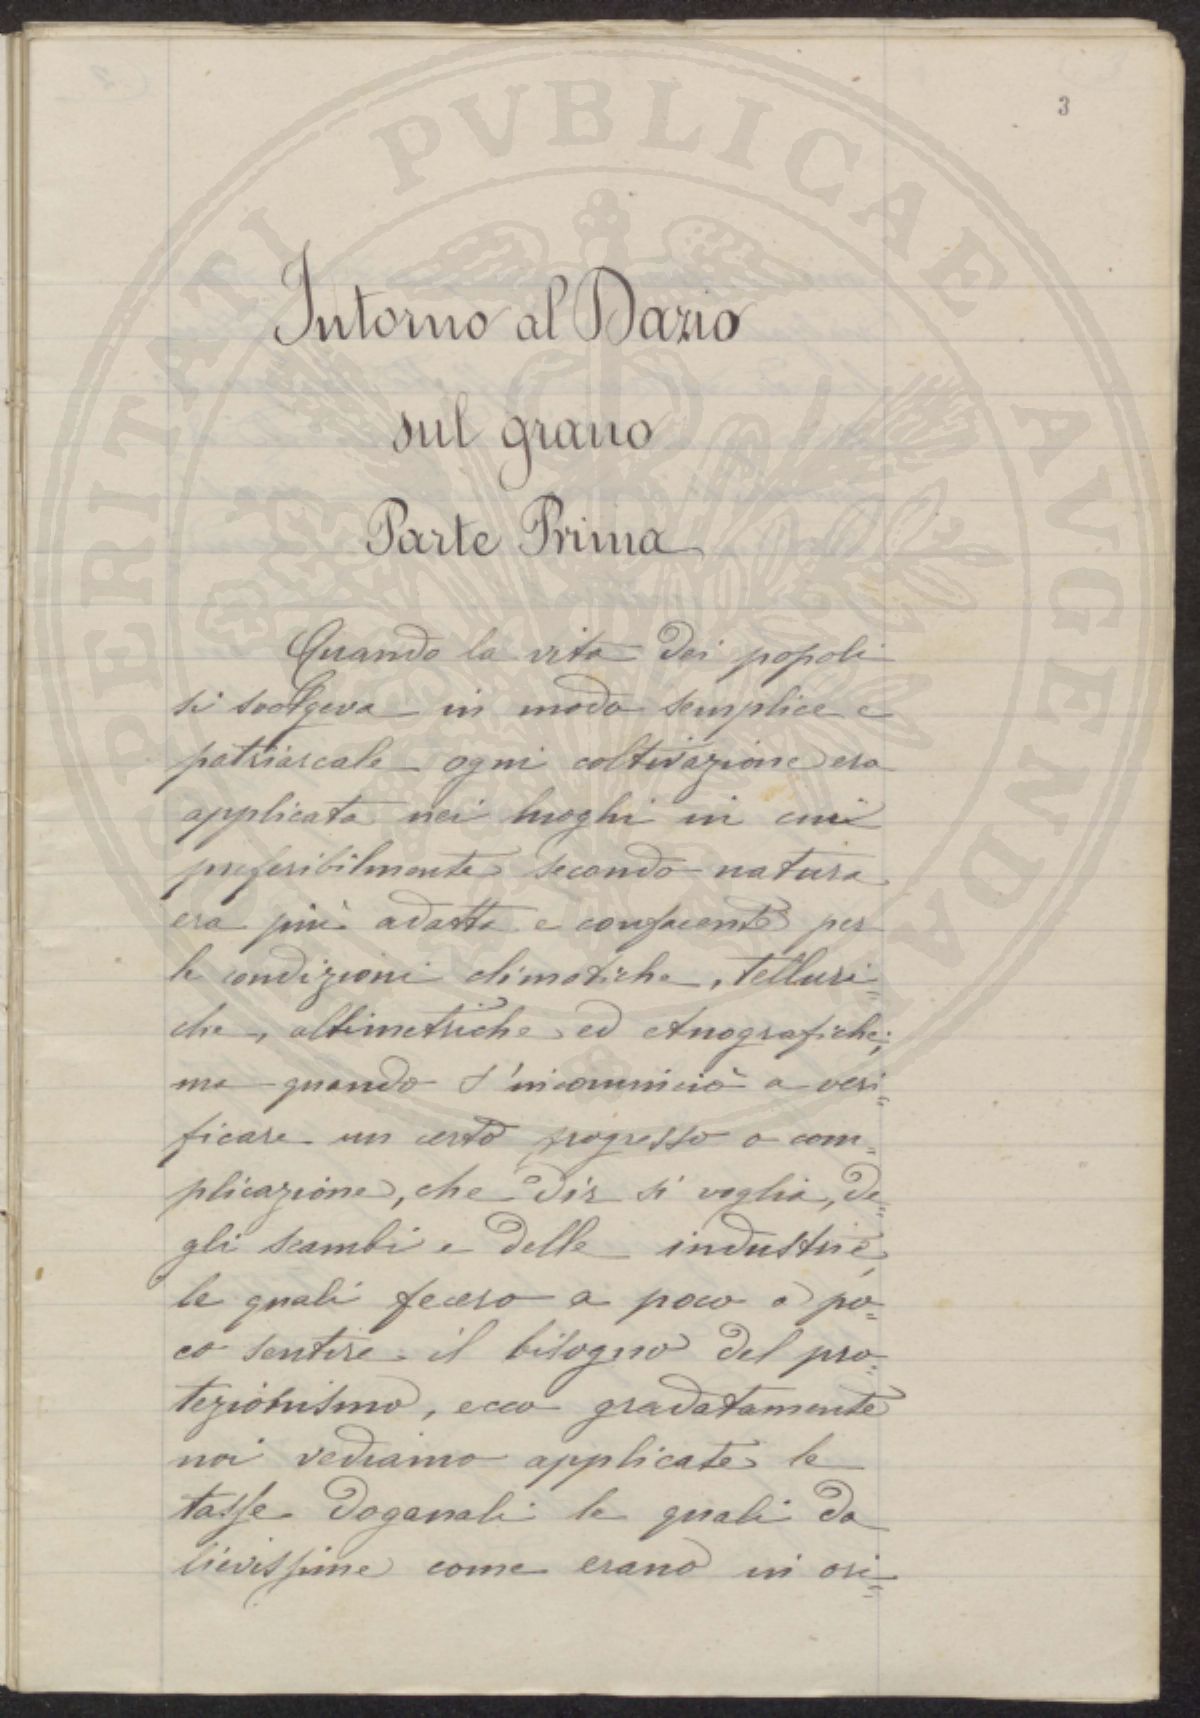 3
Intorno al Dazio
sul grano
Parte Prima
Quando la vita dei popoli
si svolgeva in modo semplice e
patriarcale ogni coltivazione era
applicata nei luoghi in cui
preferibilmente secondo natura
era più adatta e confacente per
le condizioni climatiche, telluri=
che, altimetriche ed etnografiche;
ma quando s'incominciò a veri=
ficare un certo progresso o com=
plicazione, che dir si voglia, de=
gli scambi e delle industrie,
le quali fecero a poco a po=
co sentire il bisogno del pro=
tezionismo, ecco gradatamente
noi vediamo applicate le
tasse doganali le quali da
lievissime come erano in ori=
PERITATI PVBLICAE AVGENDAE